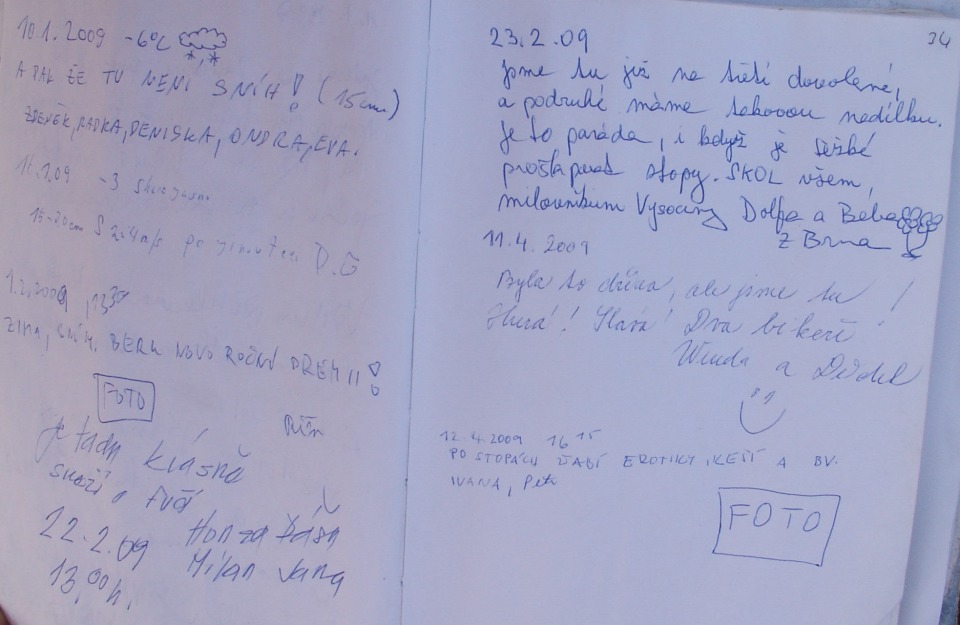 10.1.2009 -6°C
A PAK ŽE TU NENÍ SNÍH! (15cm)
ZDENĚK, RADKA, DENISKA, ONDRA, EVA.
-3
15-20cm S 2.4m/s po D.Č
1.2.2009, 13
ZIMA, SNÍH, BERU NOVOROČNÍ PRÉMII!
FOTO
Je tady krásně
sněží a fučí
22.2.09 Honza Dáša
13.00h. Milan Jana
34
23.2.09
Jsme tu již na třetí dovolené,
a podruhé máme takovou nadílku.
Je to paráda, i když je těžké
stopy. SKOL všem,
milovníkum Vysočiny Dolfa a Beba
z Brna
11.4.2009
Byla to dřina, ale jsme tu!
Hurá! Sláva! Dva bikeři
a
12.4.2009 16 15
PO STOPÁCH ŽABÍ EROTIKY, KEŠÍ A BV.
IVANA, Petr
FOTO